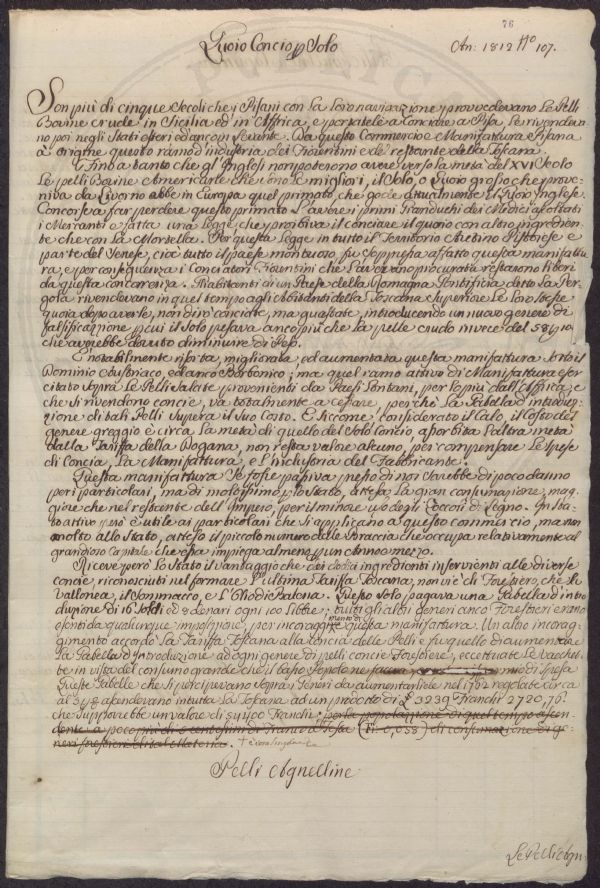 76
Quoio Concio p Solo
An: 1812 Nº 107.
Son più di cinque Secoli che i Pisani con la loro navigazione provvedevano le Pelli
Bovine crude in Sicilia ed in Affrica, e portatele a Conciare a Pisa le rivendeva
no poi negli Stati esteri ed anco in Levante. Da questo Commercio e Manifattura Pisana
à origine questo ramo d'industria dei Fiorentini e del restante della Toscana.
Fino a tanto che gl'Inglesi non poterono avere verso la metà del XVI Secolo
le pelli Bovine Americane che sono le migliori, il Solo, o Quoio grosso che prove=
niva da Livorno ebbe in Europa quel primato che gode attualmente il Quoio inglese.
Concorse a far perdere questo primato l'avere i primi Granduchi dei Medici
i Mercanti e fatta una legge che proibiva il conciare il quoio con altro ingredien=
te che con la Mortella. Per questa legge in tutto il Territorio Aretino Pistoiese e
parte del Senese, cioè tutto il paese montuoso, fu soppressa affatto questa manifattu
ra, e per conseguenza i Conciatori Fiorentini che l'avevano procurata restarono liberi
da questa concorrenza. Gli abitanti di un Paese della Romagna Pontificia detto la Per=
gola rivendevano in quel tempo agli abitanti della Toscana Superiore le loro stesse
quoia dopo averle, non dirò conciate, ma guastate, introducendo un nuovo genere di
falsificazione p cui il Solo pesava anco più che la pelle cruda invece del 58 p 100
che avrebbe dovuto diminuire di Peso.
È notabilmente risorta, migliorata ed aumentata questa manifattura sotto il
Dominio Austriaco, ed anco Borbonico; ma quel ramo attivo di Manifattura eser
citato sopra le Pelli Salate provenienti da Paesi lontani, per lo più dall'Affrica, e
che si rivendono concie, va totalmente a cessare, perchè la Gabella d'introdu=
zione di tali Pelli supera il suo Costo. E siccome considerato il Calo, il Costo del
genere greggio è circa la metà di quello del Solo Concio, assorbita l'altra metà
dalla Tariffa della Dogana, non resta valore alcuno, per compensare le Spese
di Concia, la Manifattura, e l'industria del Fabbricante.
Questa manifattura se fosse passiva presso di noi sarebbe di poco danno
per i particolari, ma di moltissimo p lo Stato, attesa la gran consumazione, mag
giore che nel restante dell'Impero, per il minore uso degli Zoccoli di Legno. In Sta=
to attivo poi è utile ai particolari che si applicano a questo commercio, ma non
molto allo Stato, atteso il piccolo numero delle braccia che occupa relativamente al
grandioso Capitale che essa impiega almeno p un Anno e mezzo.
Riceve però lo Stato il vantaggio che dei dodici ingredienti inservienti alle diverse
concie, riconosciuti nel formare l'ultima Tariffa Toscana, non vi è di Forestiero, che la
Vallonea, il Sommacco, e l'Olio di Balena. Questo solo pagava una Gabella d'intro
duzione di 16 Soldi e 8 denari ogni 100 Libbre; tutti gli altri generi anco Forestieri erano
esenti da qualunque imposizione, per incoraggire questa manifattura. Un altro incorag=
gimento accordò la Tariffa Toscana alla concia delle Pelli e fu quello di aumentare
la Gabella d'Introduzione ad ogni genere di pelli concie Forestiere, eccettuate le Vacchet
te in vista del consumo grande che il basso Popolo ne faceva
Queste Gabelle che si percipevano sopra i Generi da aumentarsi nel 1782 regolate circa
al 3 4/8 ascendevano in tutta la Toscana ad un prodotto di £ 3239 Franchi 2720,76
che supporrebbe un valore di 91500 Franchi; per la popolazione di quel tempo ascen=
dente a poco più di 6 centesimi di Franco a Testa (Fr. 0,058) di consumazione di ge=
neri forestieri di tal Materia.
Pelli Agnelline
Le Pelli Agn